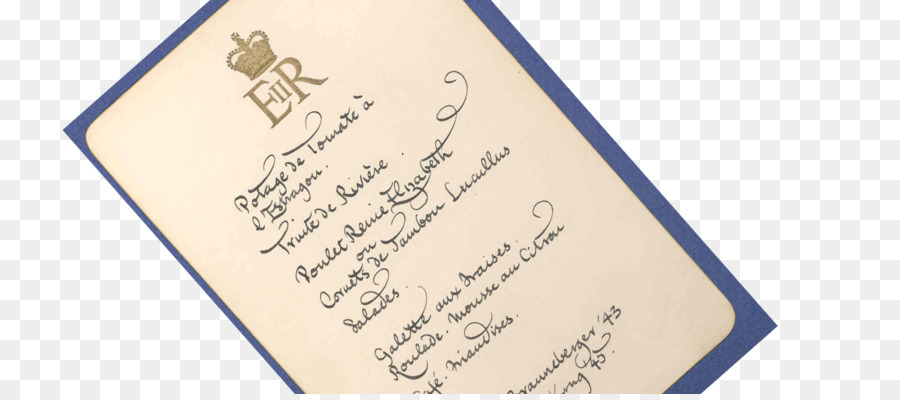 EIIR
Potage de Tomate à
l'Estragon.
Truite de Rivière.
Poulet Reine Elizabeth
ou
Cornets de Jambon Lucullus
Salades.
Galette aux Fraises.
Roulade. Mousse au Citron
Café. Friandises.
Brauneberger '43
'43.